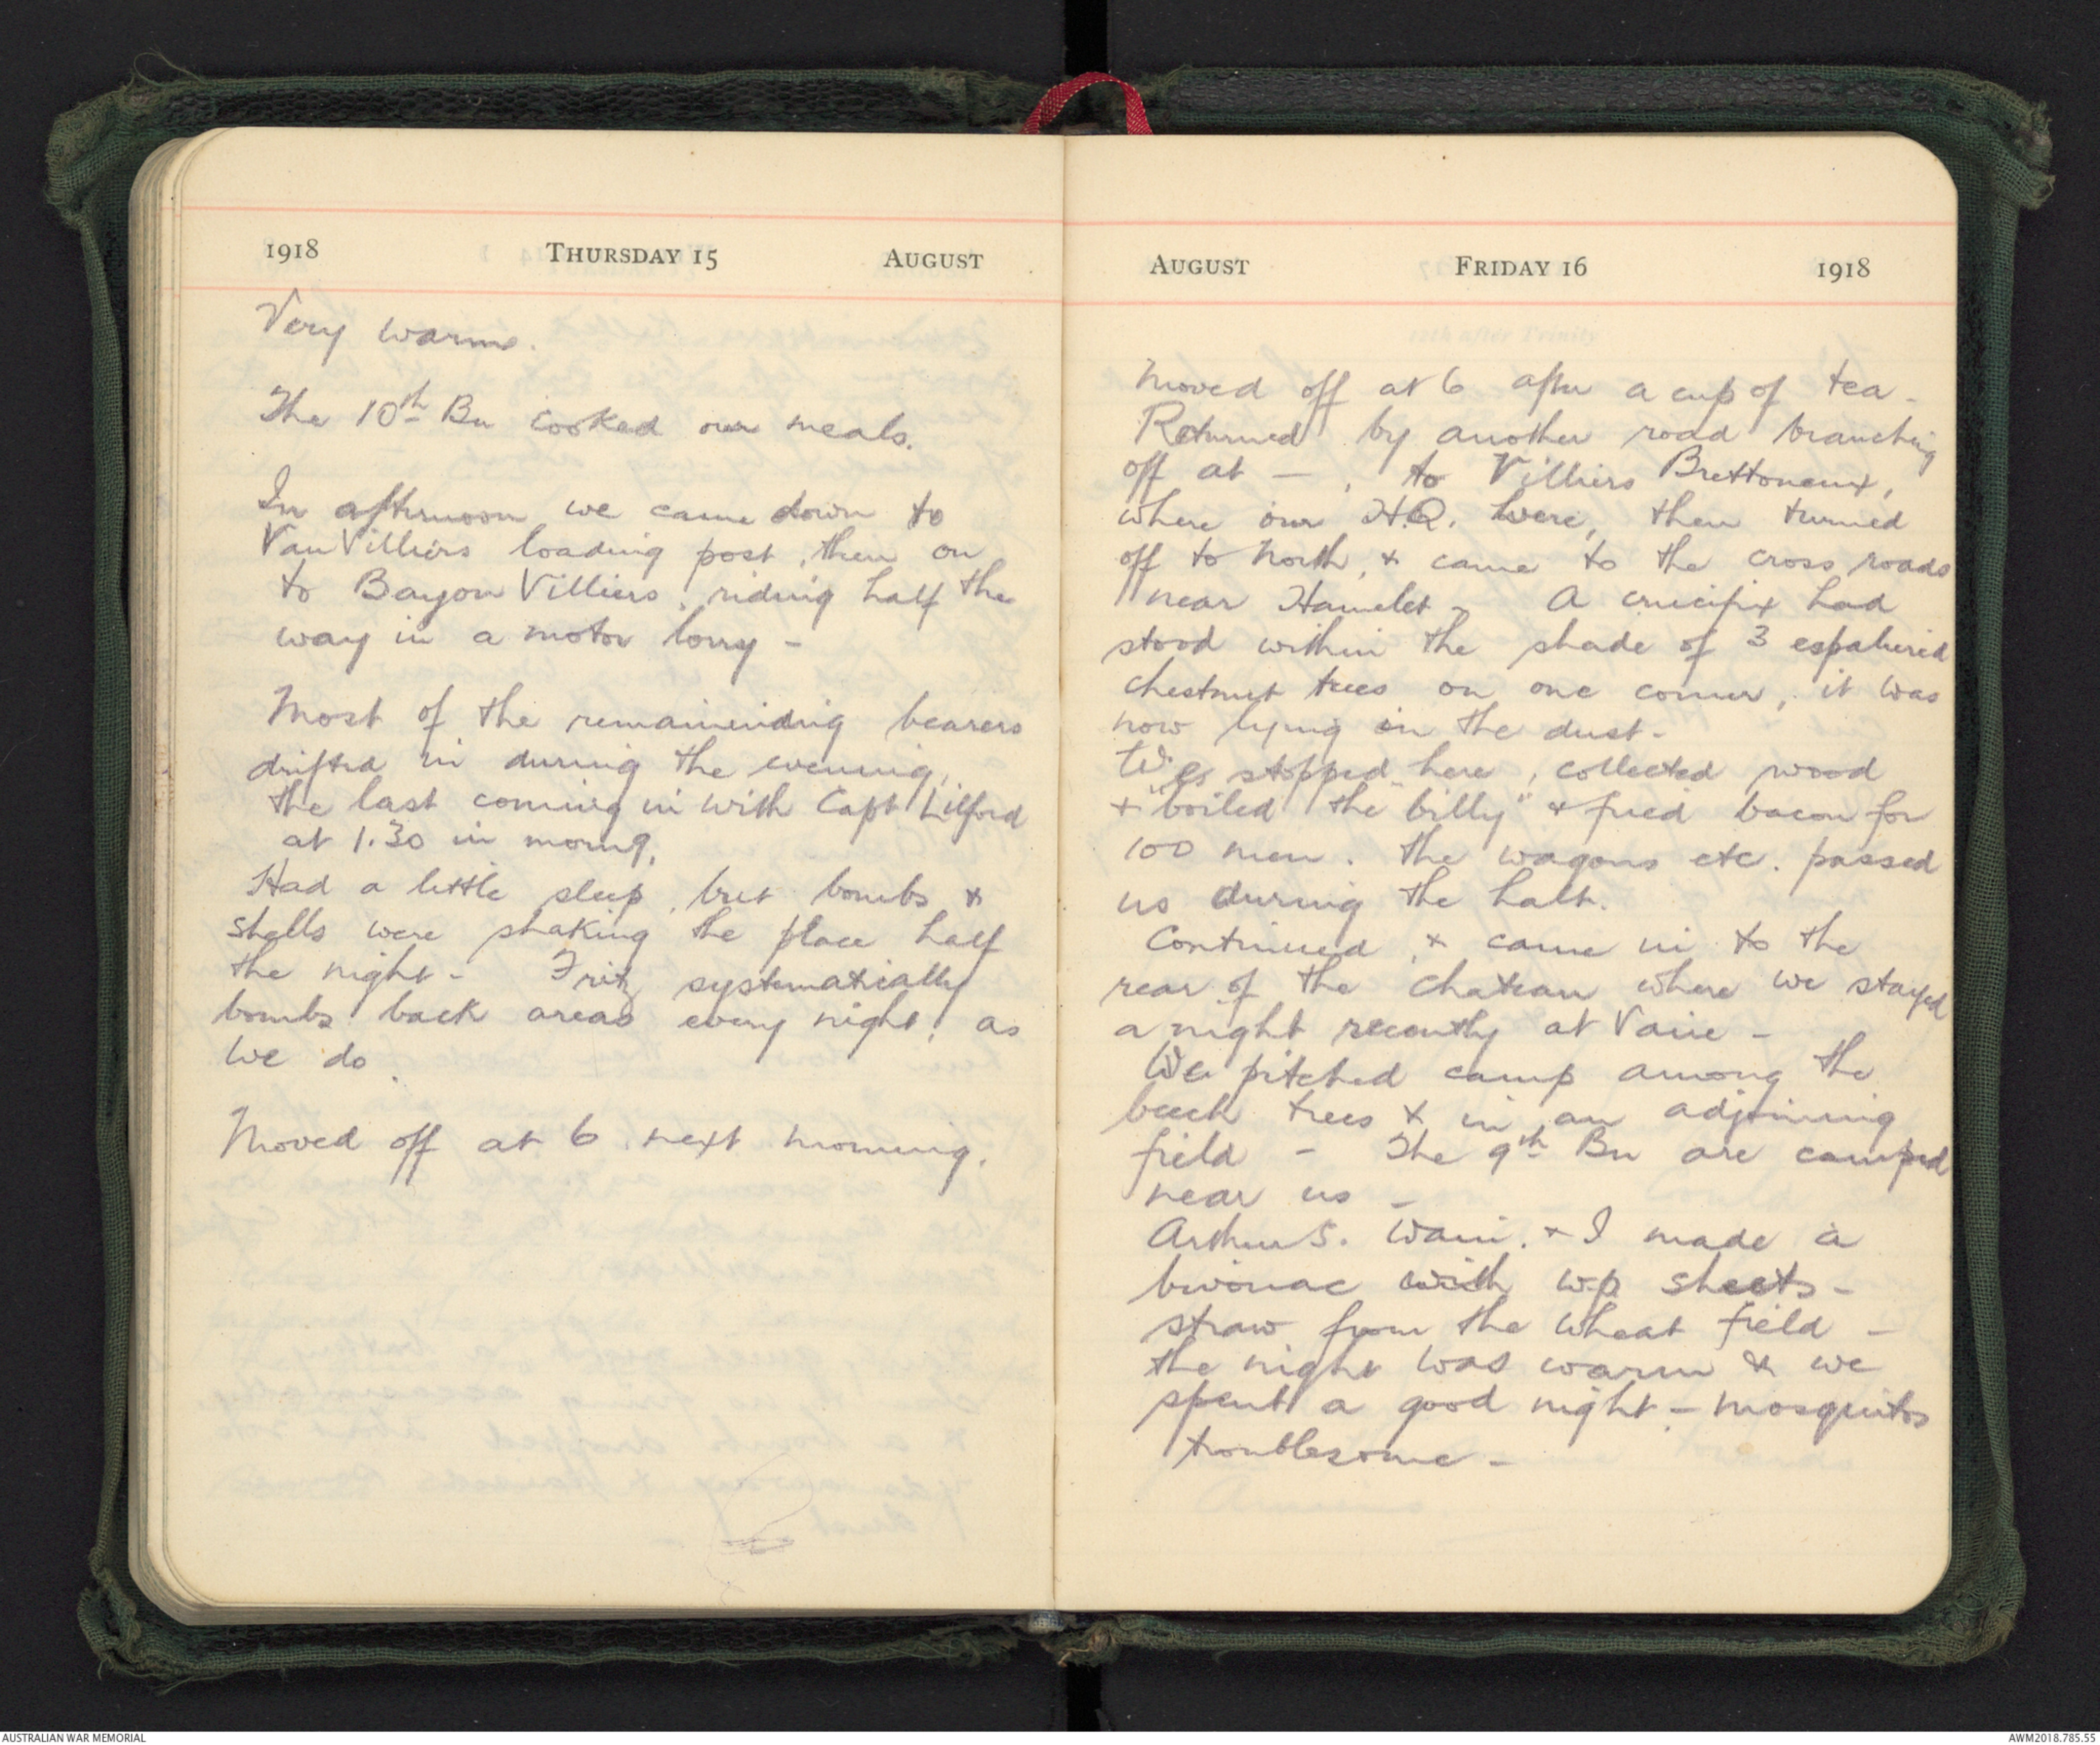 1918 THURSDAY 15 AUGUST
Very warm.
The 10th Bn cooked our meals.
In afternoon we came down to
VauVilliers loading post, then on
to Bayon Villiers, riding half the
way in a motor lorry -
Most of the remainending bearers
drifted in during the evening,
the last coming in with Capt Lilford
at 1.30 in morng.
Had a little sleep, but bombs &
shells were shaking the place half
the night - Fritz systematically
bombs back areas every night, as
we do.
Moved off at 6 next morning.
AUGUST FRIDAY 16 1918
Moved off at 6 after a cup of tea -
Returned by another road branching
off at - , to Villiers Brettoneux,
where our H.Q. were, then turned
off to North, & came to the cross roads
near Hamelet - A crucifix had
stood within the shade of 3 espaliered
chestnut trees on one corner, it was
now lying in the dust -
We stopped here, collected wood
& "boiled the billy" & fried bacon for
100 men. The wagons etc. passed
us during the halt.
Continued, & came in to the
rear of the Chateau where we stayed
a night recently at Vaire -
We pitched camp among the
beech trees & in an adjoining
field - The 9th Bn are camped
near us -
Arthur S. & I made a
bivouac with w.p sheets -
straw from the wheat field -
the night was warm & we
spent a good night - mosquitos
troublesome -
AUSTRALIAN WAR MEMORIAL AWM2018.785.55